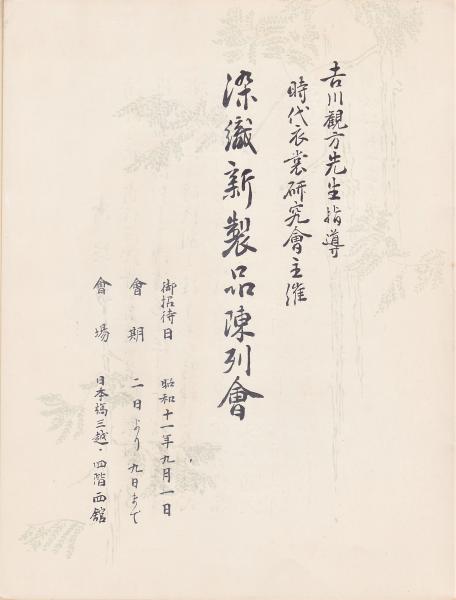 吉川觀方先生指導
時代衣裳研究會主催
染織新製品陳列會
御招待日 昭和十一年九月一日
會期 二日より九日まで
會場 日本橋三越・四階西舘